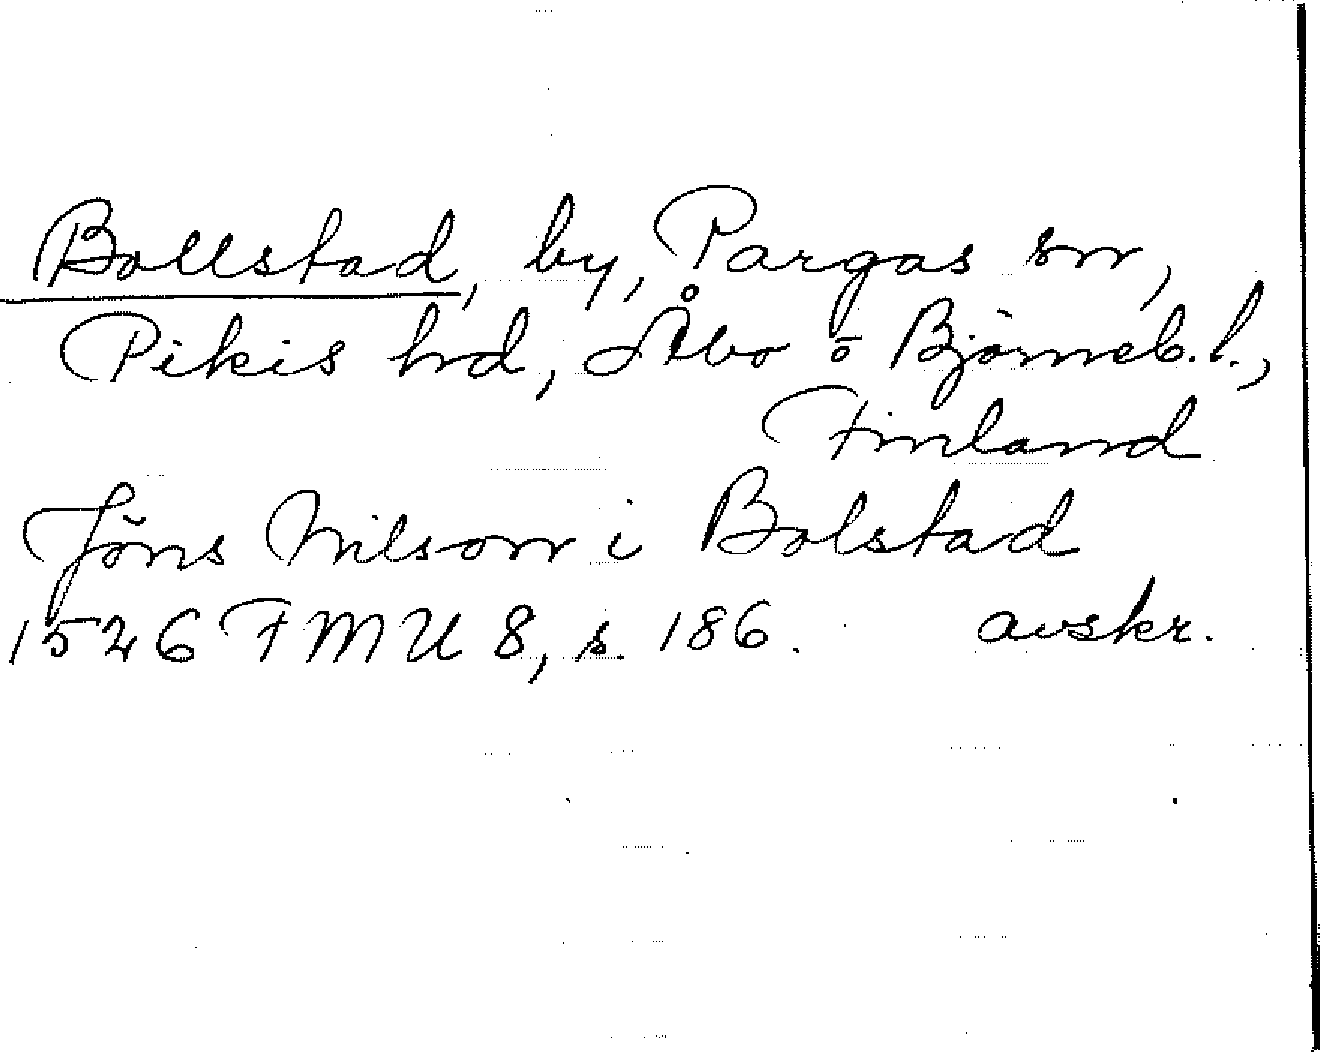 Bollstad, by, Pargas sn,
Pikis hd, Åbo o Björneb. l.,
Finland
Jöns Nilson i Bolstad
1526 FMU 8, s. 186. avskr.